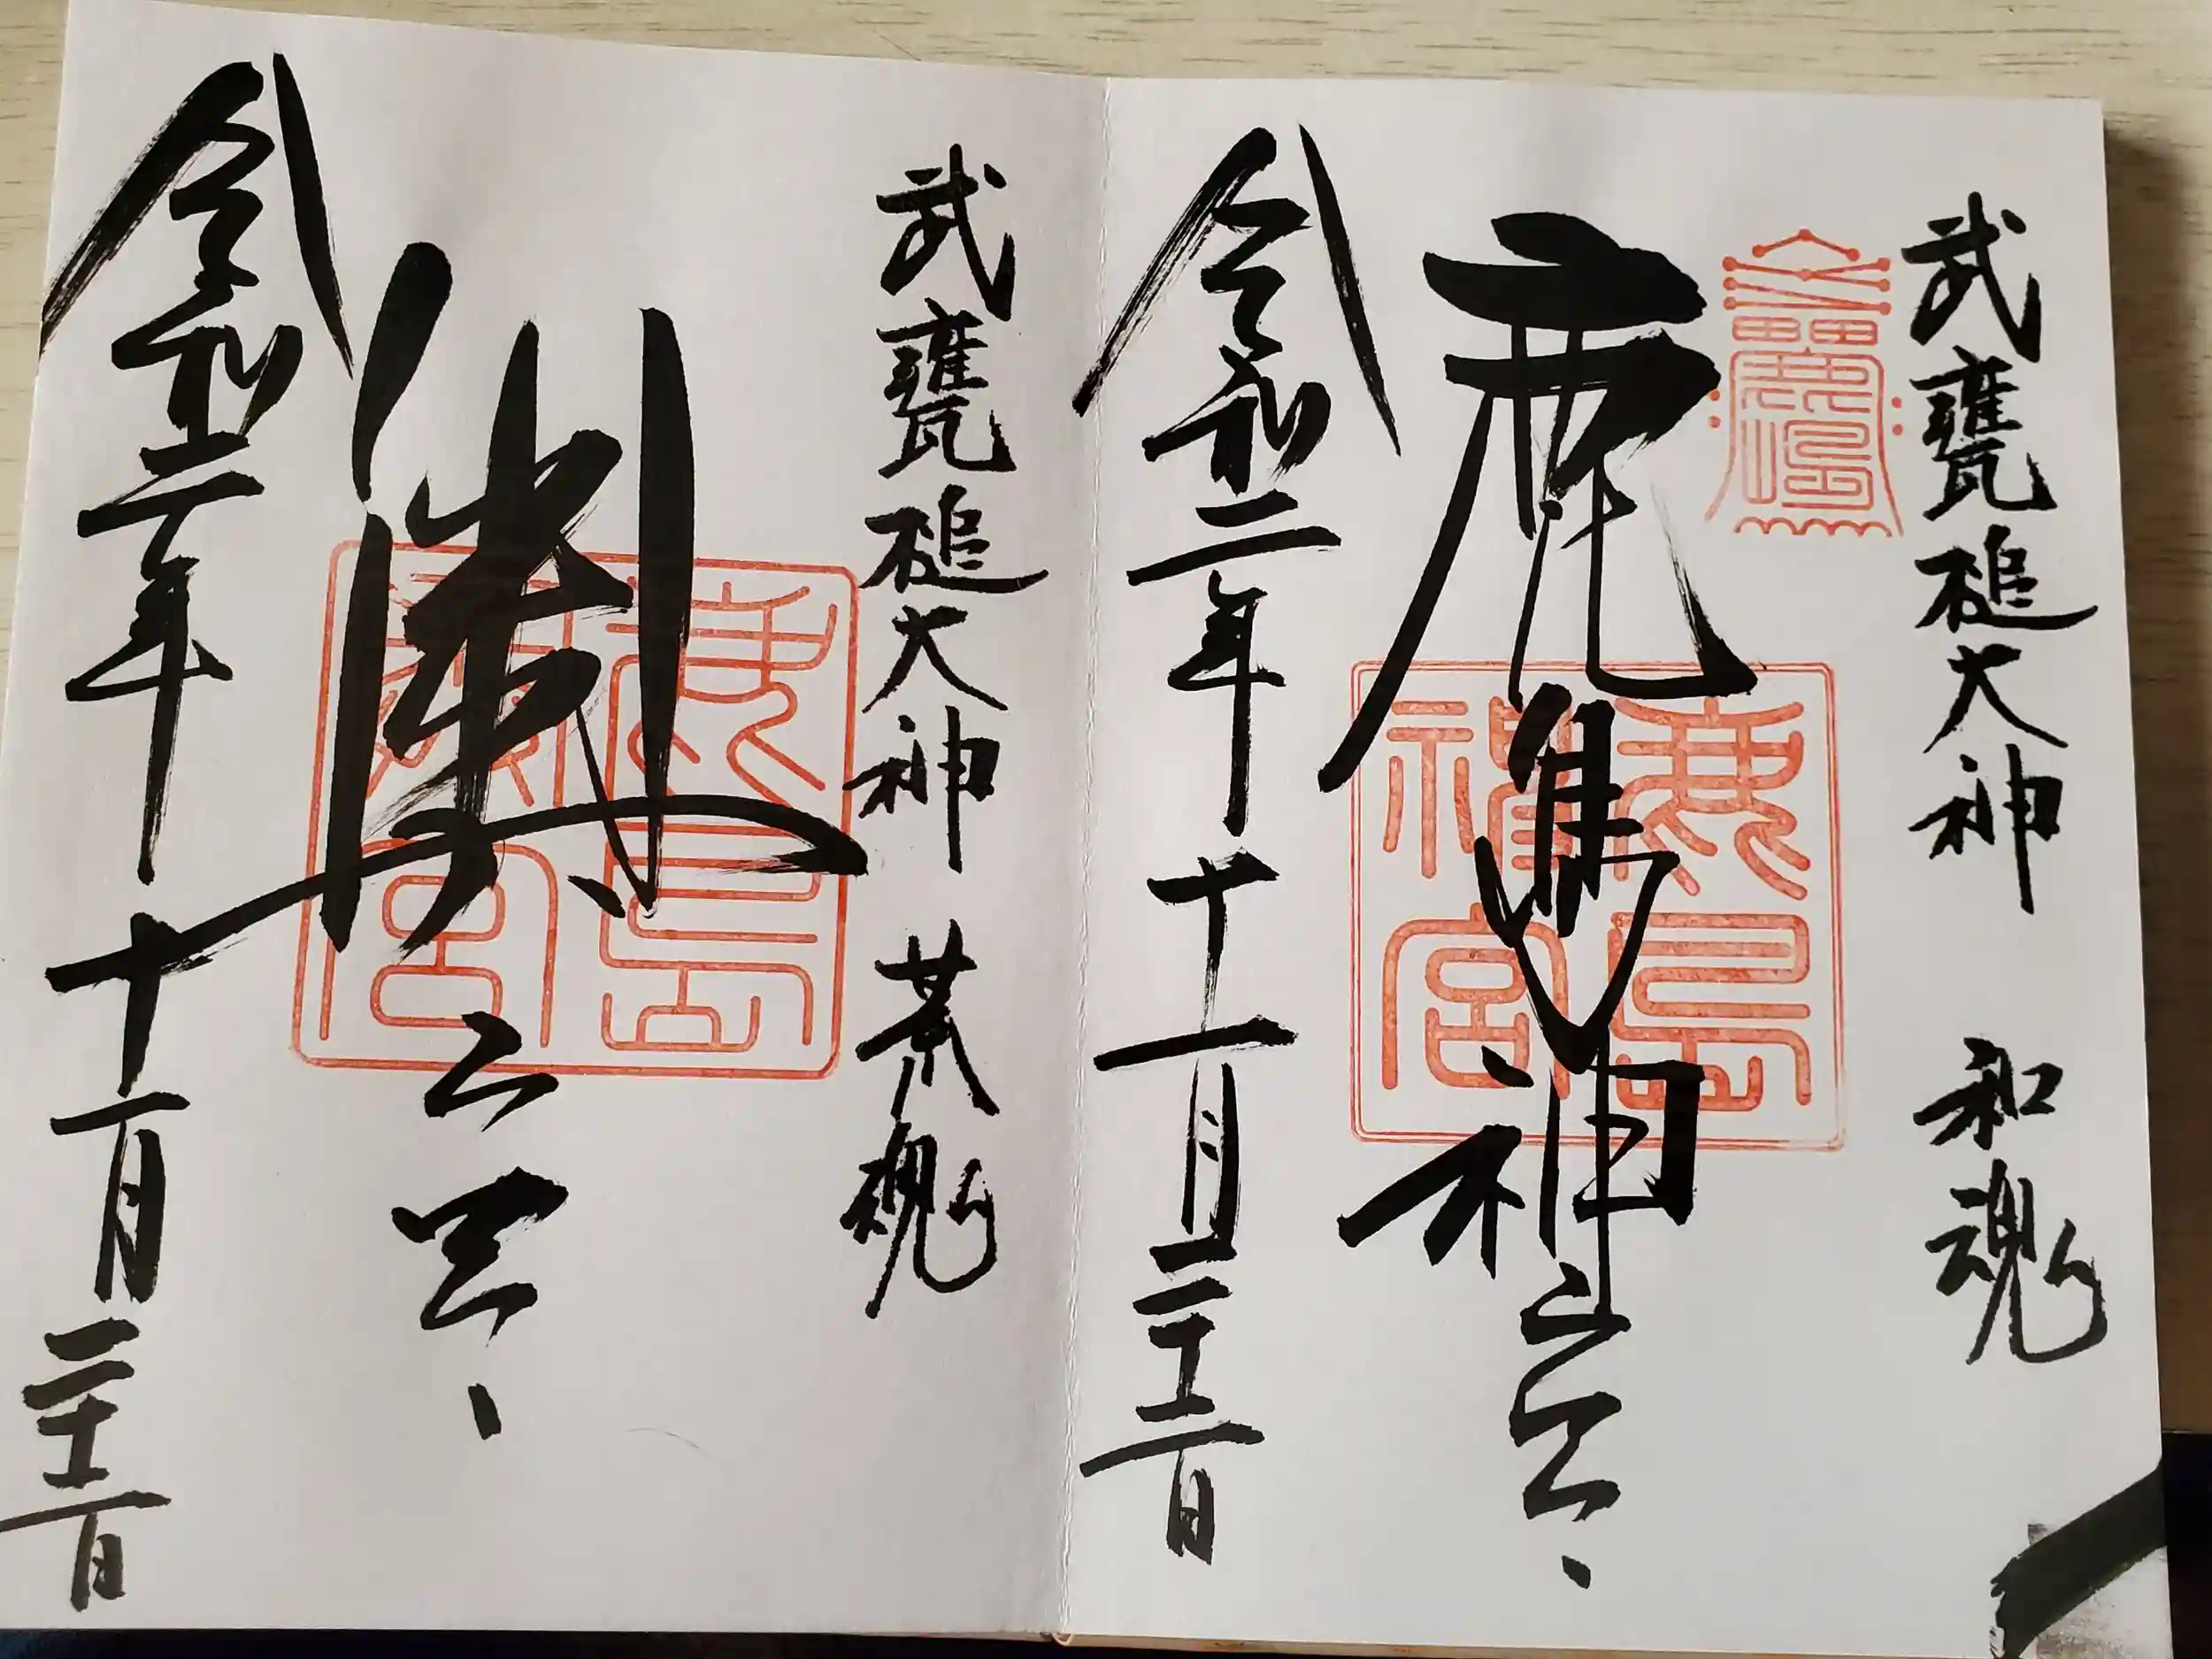 武甕槌大神 和魂
鹿島神宮
鹿島神宮
令和二年十一月二十二日
武甕槌大神 荒魂
奥宮
鹿島奥宮
令和二年十一月二十二日